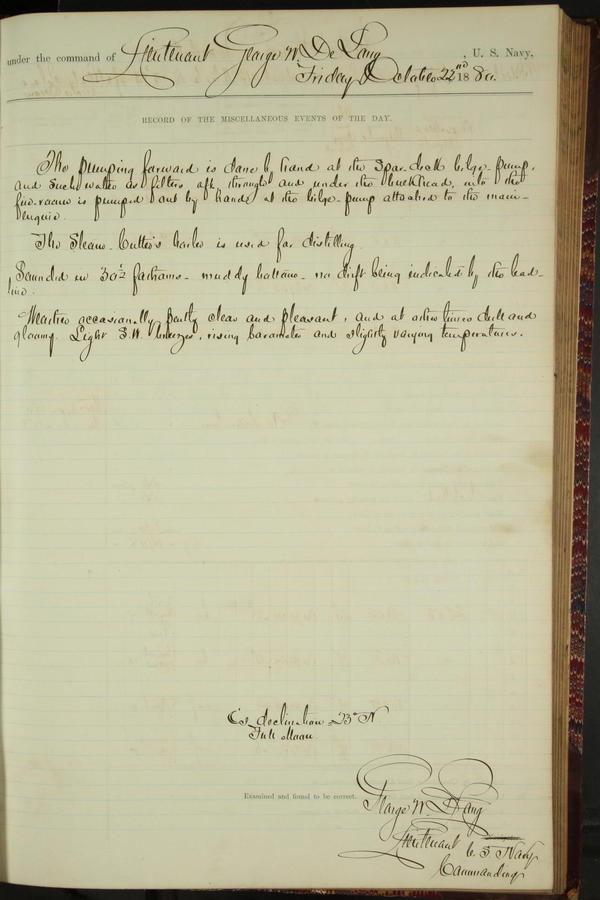 under the command of Lieutenant George W. De Long, U. S. Navy,
Friday October 22nd 1880.
RECORD OF THE MISCELLANEOUS EVENTS OF THE DAY.
The pumping forward is done by hand at the spar deck bilge pump,
and such water as filters aft through and under the bulkhead into the
fire-room is pumped out by hand at the bilge-pump attached to the main-
engine.
The Steam-Cutter's boiler is used for distilling.
Sounded in 30½ fathoms - muddy bottom - no drift being indicated by the lead-
line.
Weather occasionally partly clear and pleasant, and at other times dull and
gloomy. Light S.W. breezes, rising barometer and slightly varying temperatures.
declination 23° N
Full Moon
Examined and found to be correct.
George W. De Long
Lieutenant U. S. Navy
Commanding